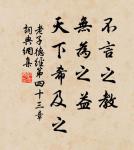 不言之教
無為之益
天下希及之
老子德经第四十三章
詞典網集